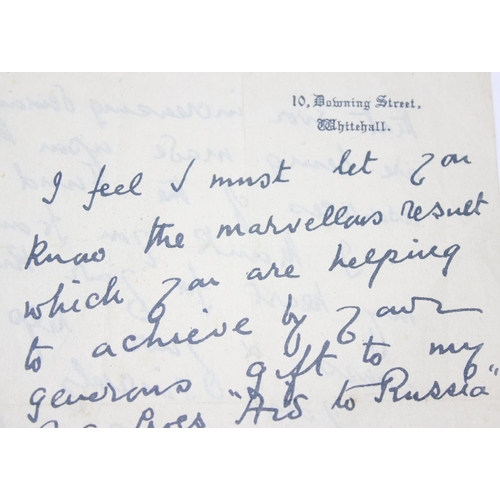 10, Downing Street,
Whitehall.
I feel I must let you
know the marvellous result
which you are helping
to achieve by your
generous gift to my
"Aid to Russia"